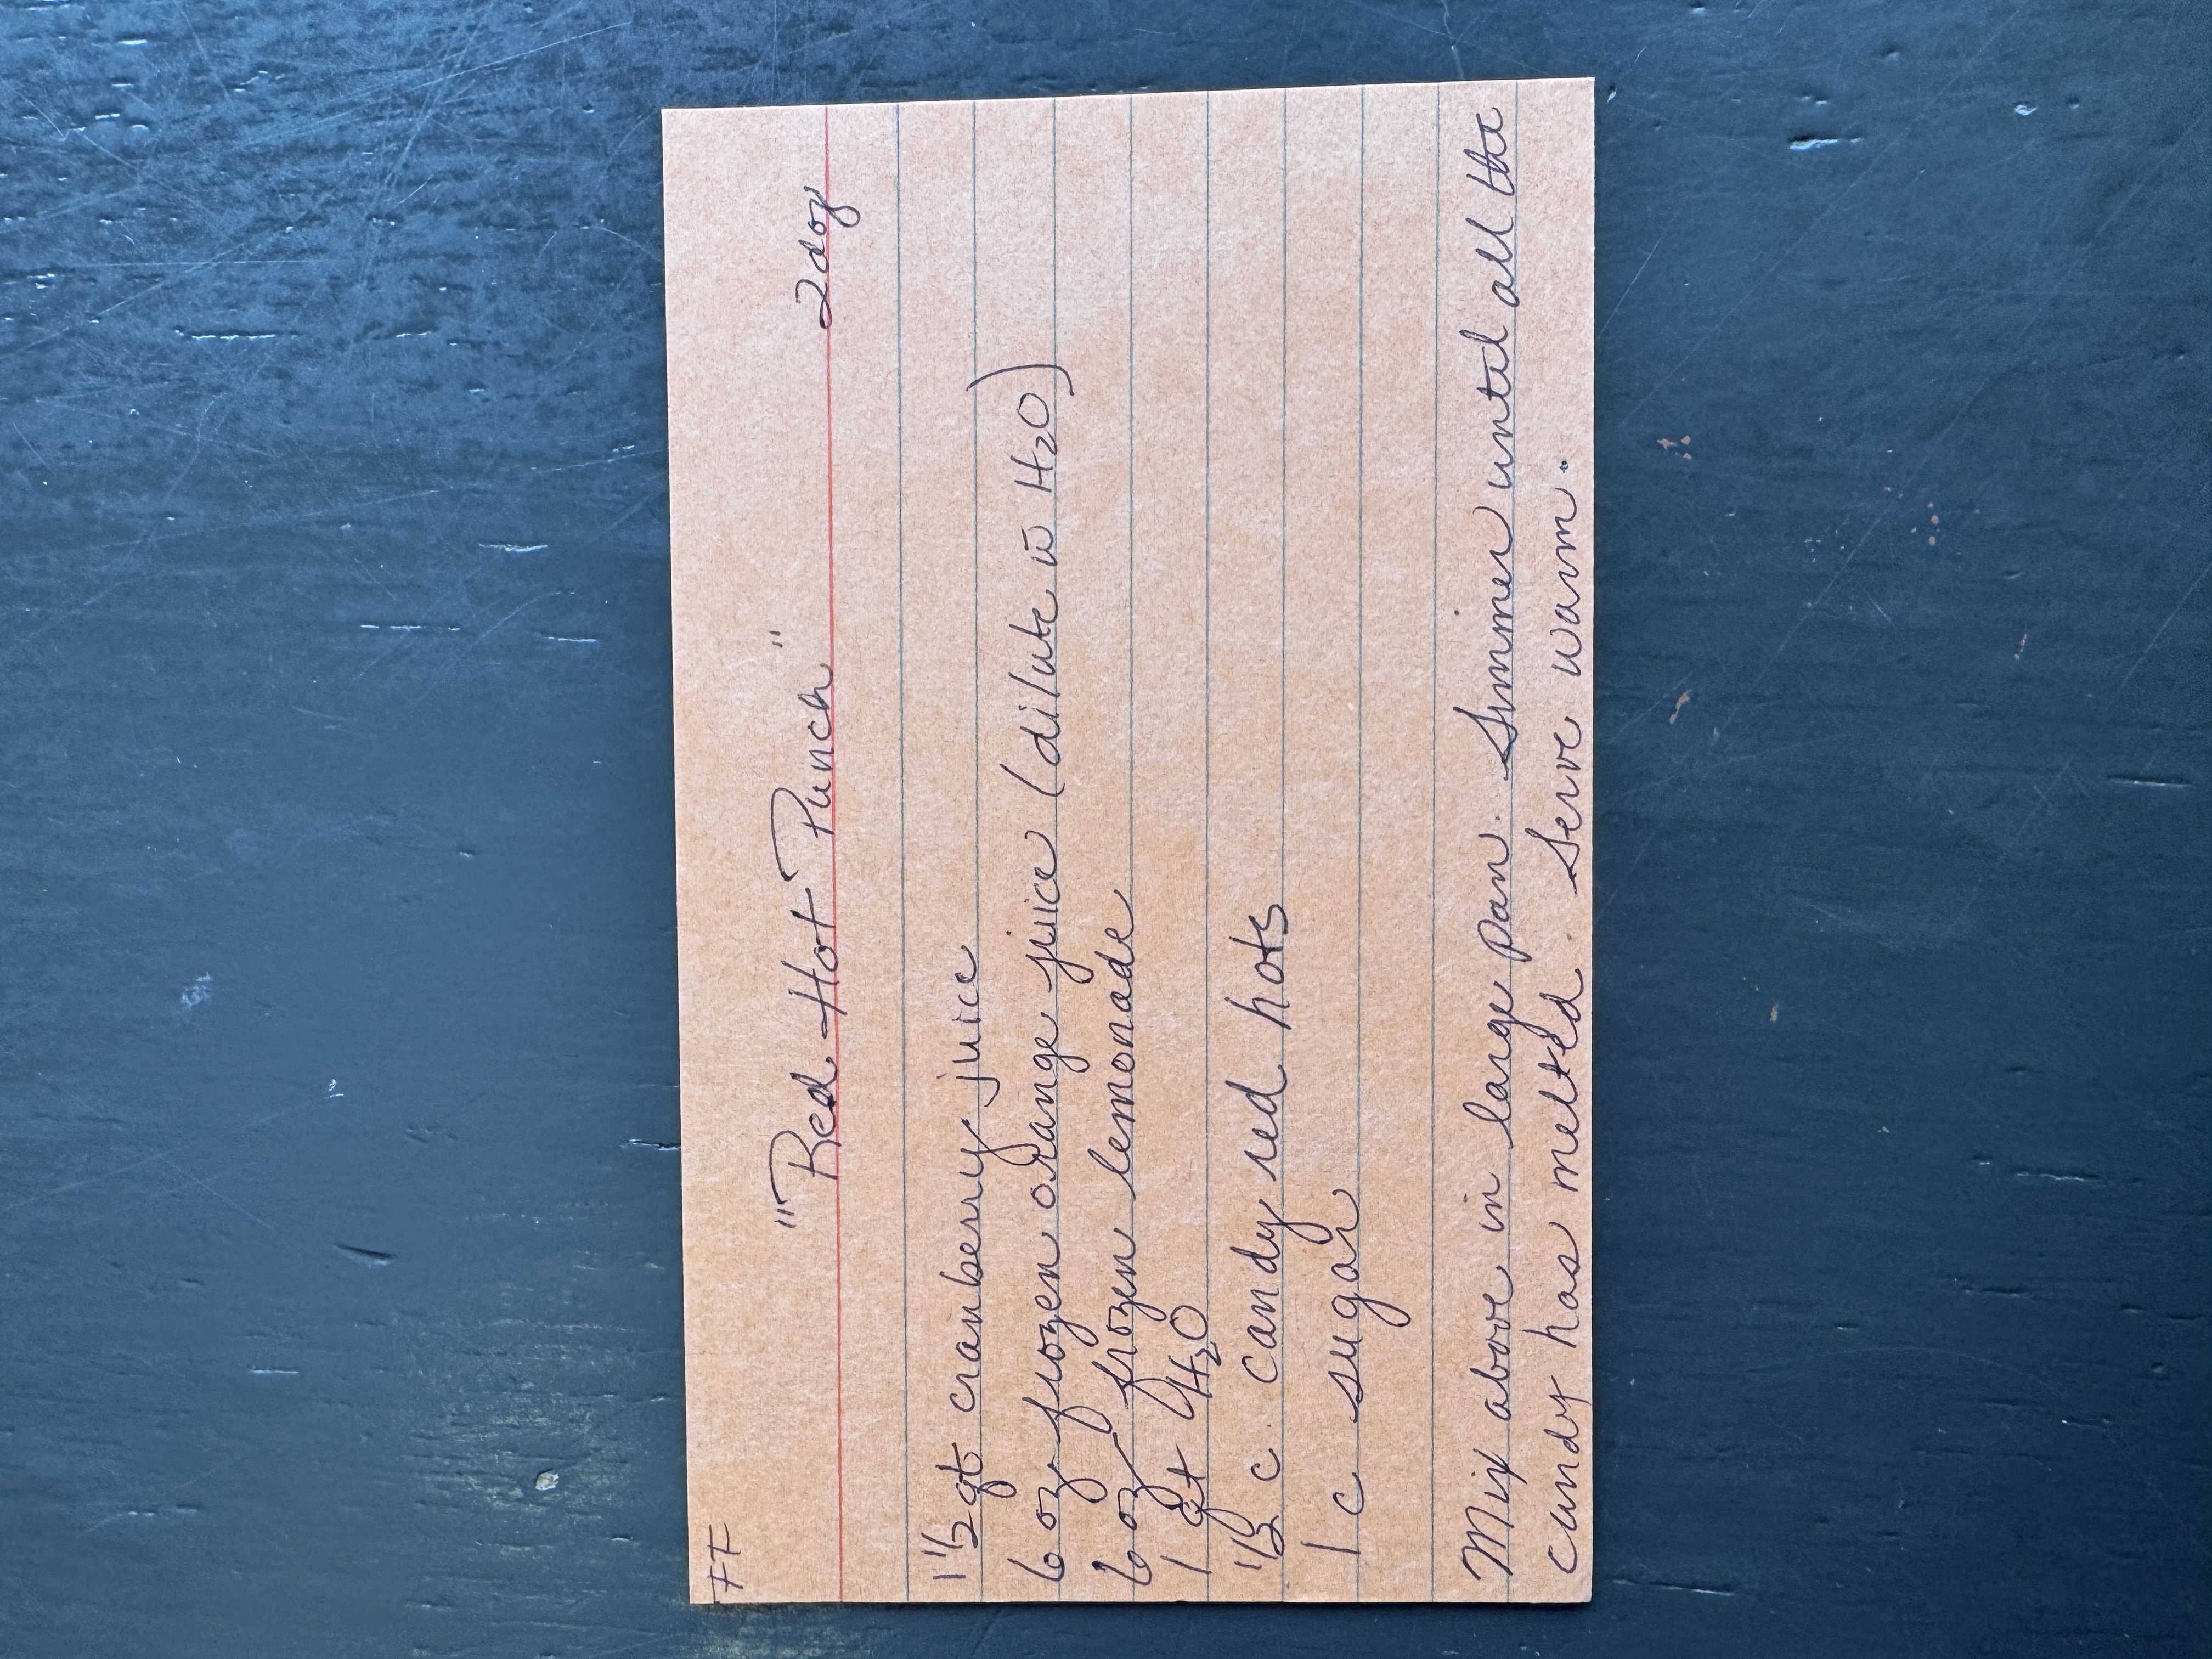 FF
"Red Hot Punch"
2doz
1 1/2 qt cranberry juice
6 oz frozen orange juice (dilute w̄ H₂O)
6 oz frozen lemonade
1 qt H₂O
1/2 c. candy red hots
1 c sugar
Mix above in large pan. Simmer until all the
candy has melted. Serve warm.